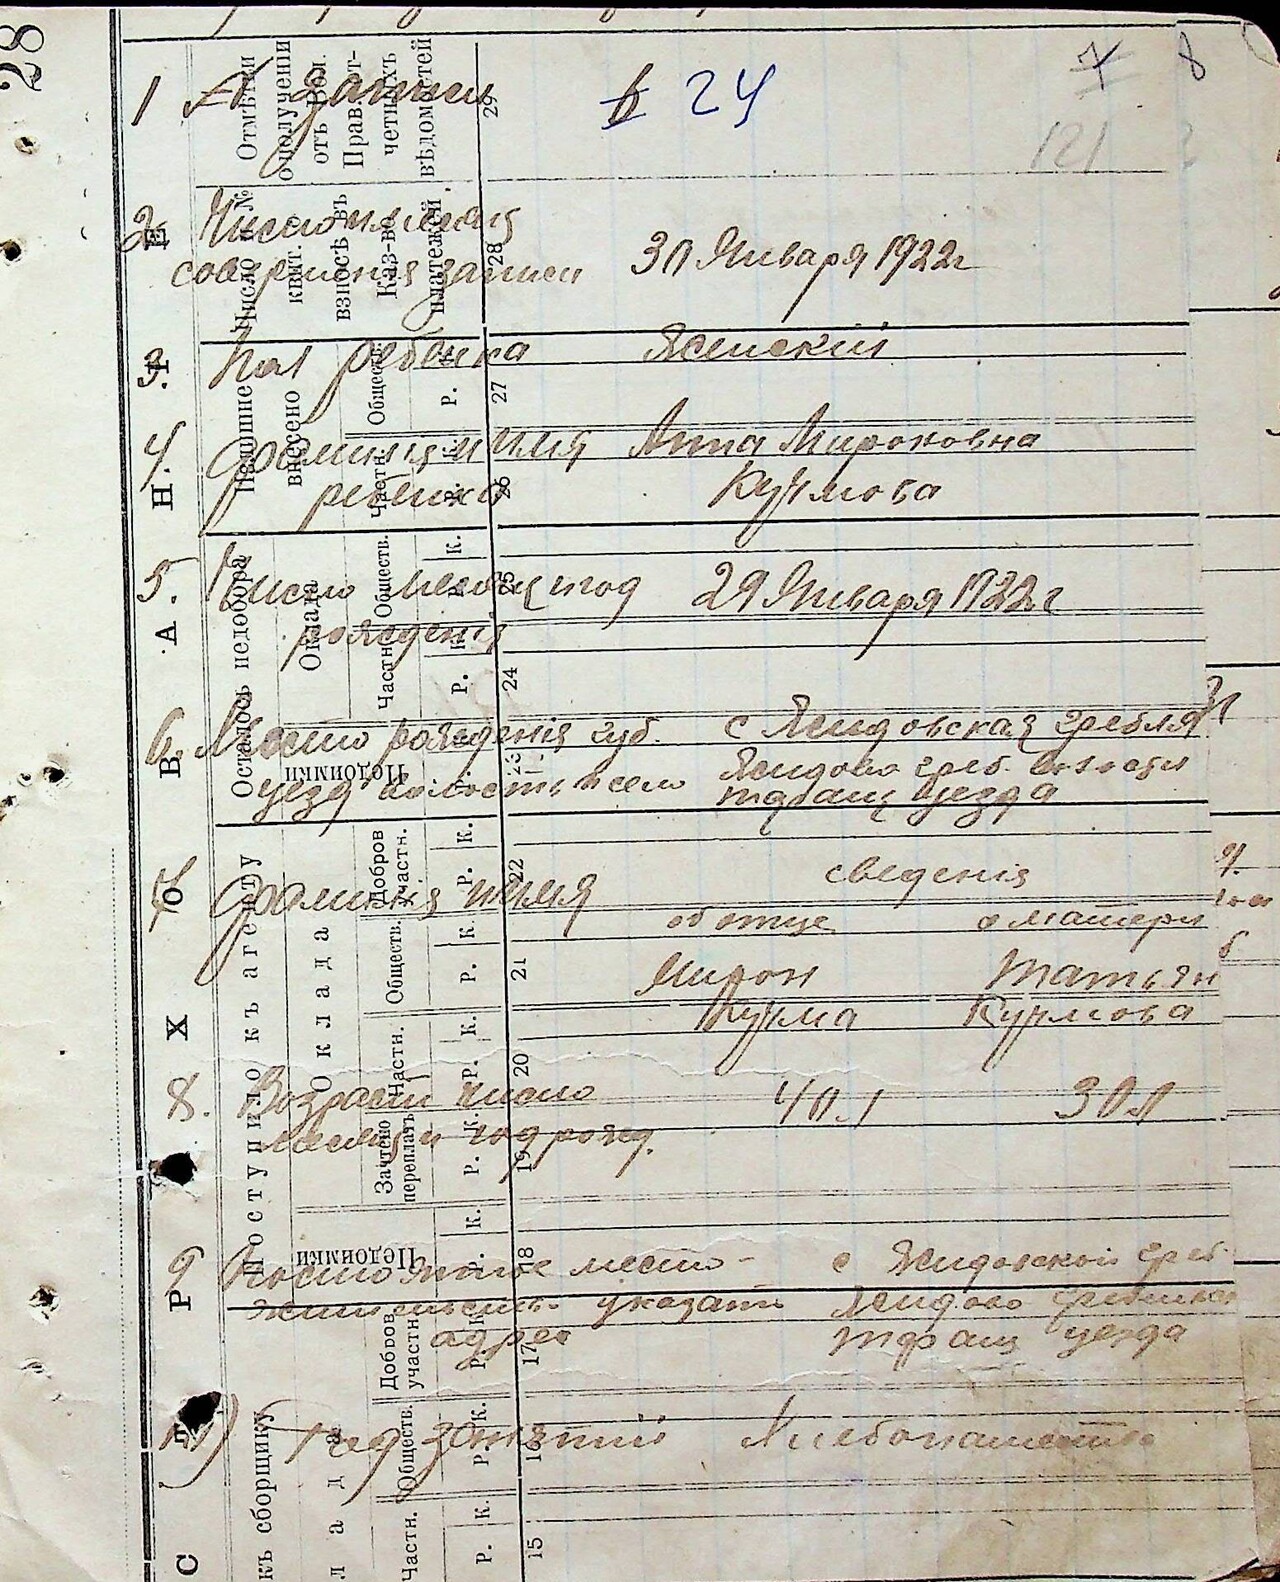 28
1 № записи 6 24 7 8
121
2. Число и месяц
совершения записи 30 Января 1922 г
3. Пол ребенка Женский
4. Фамилия и имя Анна Мироновна
ребенка Кучмова
5. Число месяц и год 29 Января 1922 г
рождения
6. Место рождения губ. с Жидовская гребля
уезд волость и село Жидово греб. волости
тфращ уезда
7. Фамилия и имя сведения
об отце о матери
Мирон Татьян
Кучма Кучмова
8. Возраст число 40 л 30 л
месяц и год рожд.
9 Постоянное место- с Жидовской греб
жительство указать Жидово
адрес тфращ уезда
10) Род занятий Хлебопашество
Отмѣтки о полученіи отъ Вол. Прав. отчетныхъ вѣдомостей 29
Число и № квит. взносѣ въ Каз-во платежей. 28
Излишне внесено
Обществ. Р. 27
Частн. 26
Осталось недобора
Оклада
Обществ. Р. К. 25
Частн. Р. К. 24
Недоимки 23
Поступило къ агенту
Оклада
Добров участн. Р. К. 22
Обществ. Р. К. 21
Частн. Р. К. 20
Зачтено переплатъ Р. К. 19
Недоимки К. 18
къ сборщику
Добров. участн. Р. К. 17
Обществ. Р. К. 16
Частн. Р. К. 15
С Т Р Х О В А Н